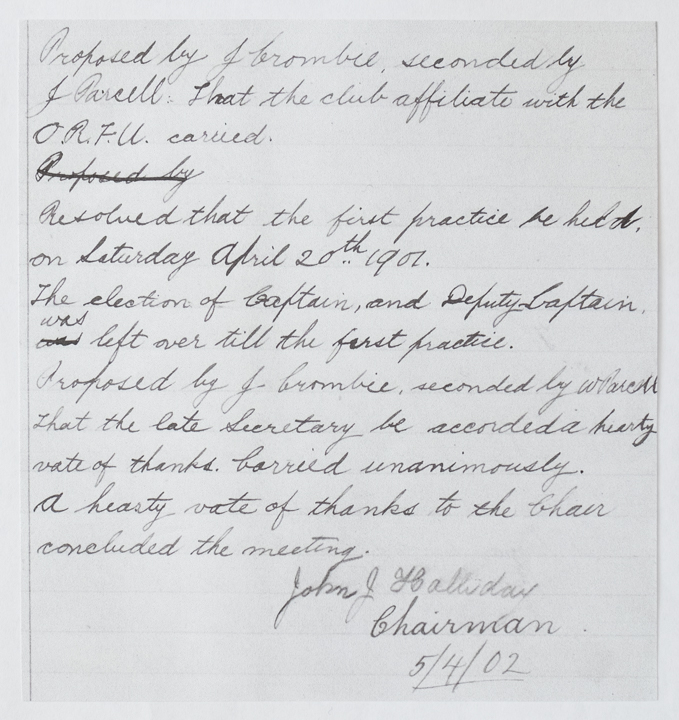 Proposed by J Crombie, seconded by
J Parcell: That the club affiliate with the
O.R.F.U. carried.
Proposed by
Resolved that the first practice be held,
on Saturday April 20th 1901.
The election of Captain, and Deputy Captain,
was
left over till the first practice.
Proposed by J Crombie, seconded by W Parcell
That the late Secretary be accorded a hearty
vote of thanks. Carried unanimously.
A hearty vote of thanks to the Chair
concluded the meeting.
John J Halliday
Chairman
5/4/02